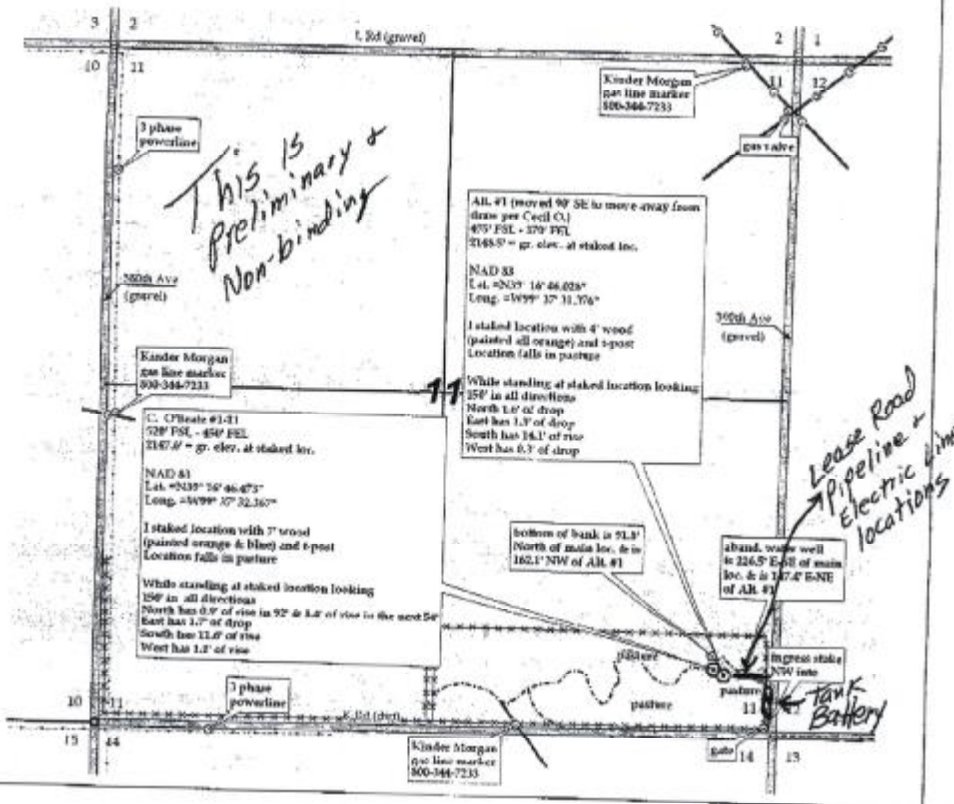 3 2
10 11
L Rd (gravel)
2 1
11 12
Kinder Morgan
gas line marker
800-344-7233
gas valve
3 phase
powerline
This is
Preliminary &
Non-binding
380th Ave
(gravel)
Kinder Morgan
gas line marker
800-344-7233
11
Alt. #1 (moved 90' SE to move away from
draw per Cecil O.)
475' FSL - 370' FEL
2148.5' = gr. elev. at staked loc.
NAD 83
Lat. =N39° 16' 46.028"
Long. =W99° 37' 31.376"
I staked location with 4' wood
(painted all orange) and t-post
Location falls in pasture
While standing at staked location looking
150' in all directions
North 1.6' of drop
East has 1.3' of drop
South has 14.1' of rise
West has 0.3' of drop
390th Ave
(gravel)
Lease Road
Pipeline &
Electric Line
locations
C. O'Beate #1-11
520' FSL - 450' FEL
2147.6' = gr. elev. at staked loc.
NAD 83
Lat. =N39° 16' 46.473"
Long. =W99° 37' 32.367"
I staked location with 7' wood
(painted orange & blue) and t-post
Location falls in pasture
While standing at staked location looking
150' in all directions
North has 0.9' of rise in 92' & of rise in the next 58'
East has 1.7' of drop
South has 12.6' of rise
West has 1.2' of rise
bottom of bank is 91.8'
North of main loc. & is
162.1' NW of Alt. #1
aband. water well
is 226.5' E-NE of main
loc. & is E-NE
of Alt. #1
ingress stake
NW into
pasture
pasture
Tank
Battery
3 phase
powerline
K Rd (dirt)
10 11
15 14
Kinder Morgan
gas line marker
800-344-7233
gate
11 12
14 13